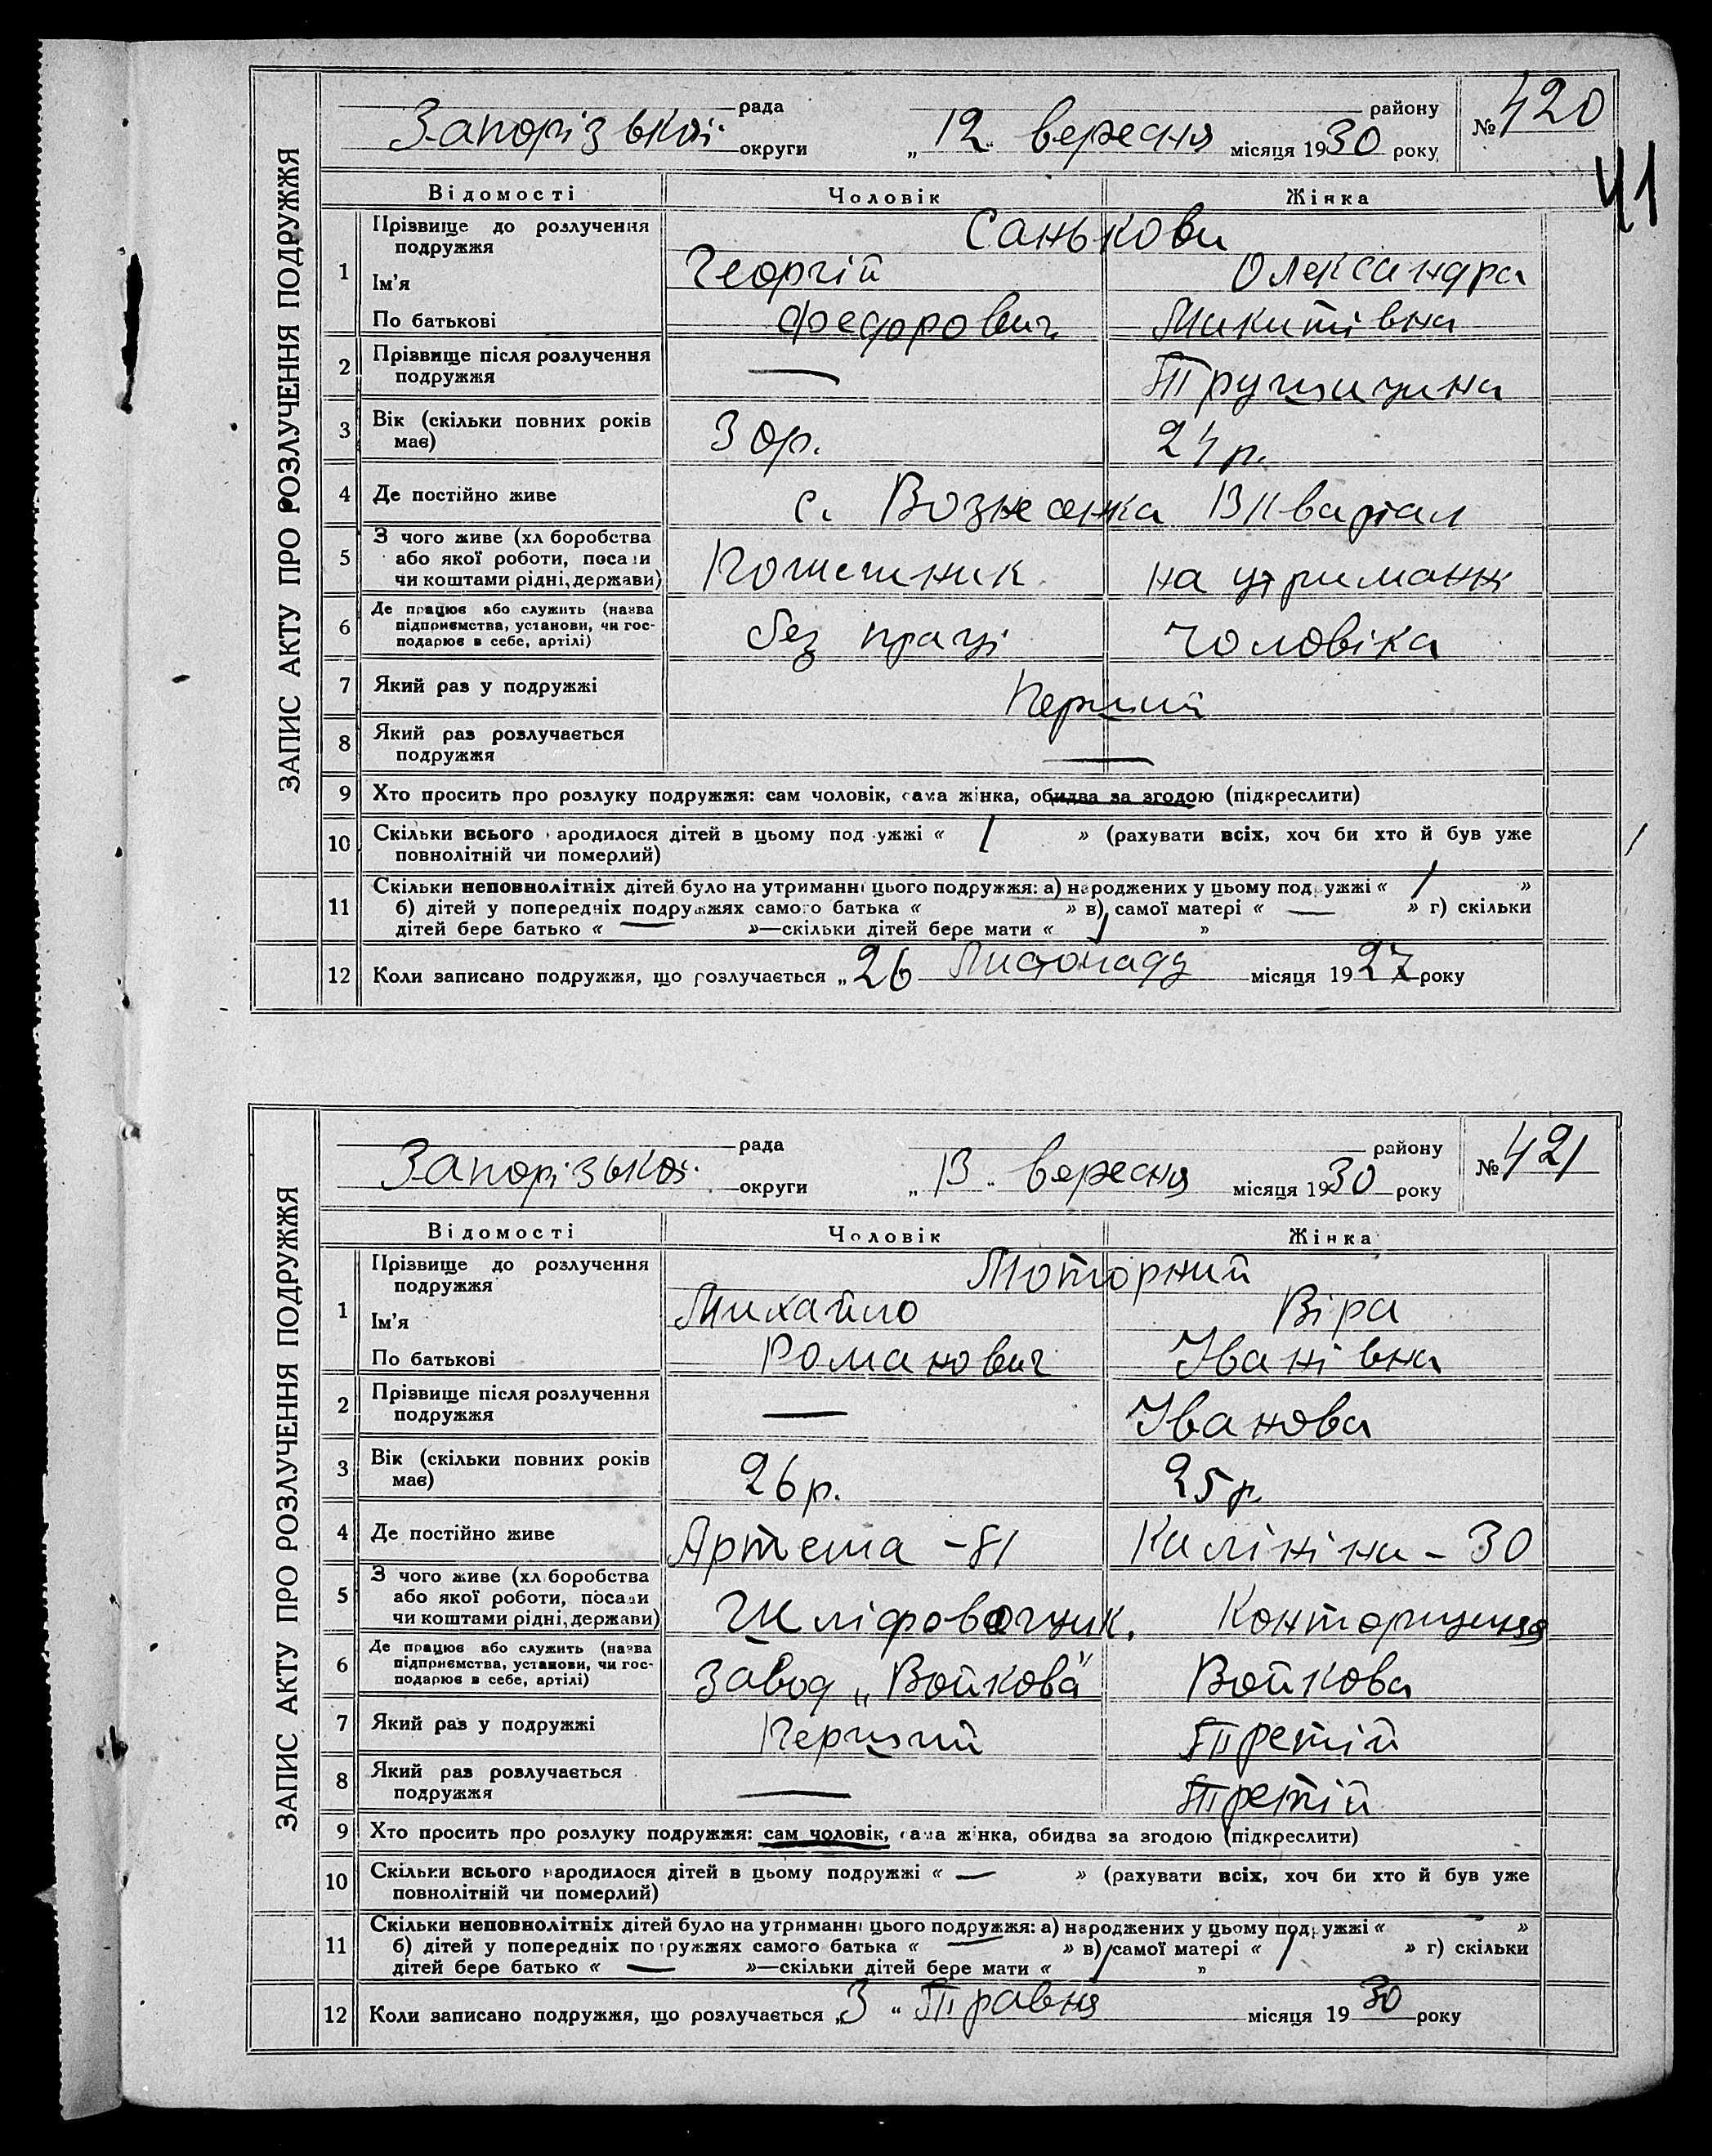 ЗАПИС АКТУ ПРО РОЗЛУЧЕННЯ ПОДРУЖЖЯ
рада району № 420
Запорізької округи „12“ вересня місяця 1930 року
41
Відомості Чоловік Жінка
1 Прізвище до розлучення подружжя Санькови
Ім'я Георгій Олександра
По батькові Федорович Микитівна
2 Прізвище після розлучення
подружжя —
3 Вік (скільки повних років
має) 30р. 24р.
4 Де постійно живе с. Вознесенка 13 квартал
5 З чого живе (хліборобства
або якої роботи, посади
чи коштами рідні, держави) на утриманні
6 Де працює або служить (назва
підприємства, установи, чи гос-
подарює в себе, артілі) без праці чоловіка
7 Який раз у подружжі Перший
8 Який раз розлучається
подружжя —
9 Хто просить про розлуку подружжя: сам чоловік, сама жінка, обидва за згодою (підкреслити)
10 Скільки всього народилося дітей в цьому подружжі « 1 » (рахувати всіх, хоч би хто й був уже
повнолітній чи померлий)
11 Скільки неповнолітніх дітей було на утриманні цього подружжя: а) народжених у цьому подружжі « 1 »
б) дітей у попередніх подружжях самого батька « » в) самої матері « — » г) скільки
дітей бере батько « — »—скільки дітей бере мати « 1 »
12 Коли записано подружжя, що розлучається „26 Листопаду місяця 1927 року
ЗАПИС АКТУ ПРО РОЗЛУЧЕННЯ ПОДРУЖЖЯ
рада району № 421
Запорізької округи „13“ вересня місяця 1930 року
Відомості Чоловік Жінка
1 Прізвище до розлучення подружжя Моторний
Ім'я Михайло Віра
По батькові Романович Іванівна
2 Прізвище після розлучення
подружжя — Іванова
3 Вік (скільки повних років
має) 26р. 25р.
4 Де постійно живе Артема – 81 Калініна – 30
5 З чого живе (хліборобства
або якої роботи, посади
чи коштами рідні, держави) Шліфовочник. Конторщиця
6 Де працює або служить (назва
підприємства, установи, чи гос-
подарює в себе, артілі) Завод „Войкова“ Войкова
7 Який раз у подружжі Перший Третій
8 Який раз розлучається
подружжя — Третій
9 Хто просить про розлуку подружжя: сам чоловік, сама жінка, обидва за згодою (підкреслити)
10 Скільки всього народилося дітей в цьому подружжі « — » (рахувати всіх, хоч би хто й був уже
повнолітній чи померлий)
11 Скільки неповнолітніх дітей було на утриманні цього подружжя: а) народжених у цьому подружжі « »
б) дітей у попередніх подружжях самого батька « — » в) самої матері « 1 » г) скільки
дітей бере батько « — »—скільки дітей бере мати « 1 »
12 Коли записано подружжя, що розлучається „3“ Травня місяця 1930 року